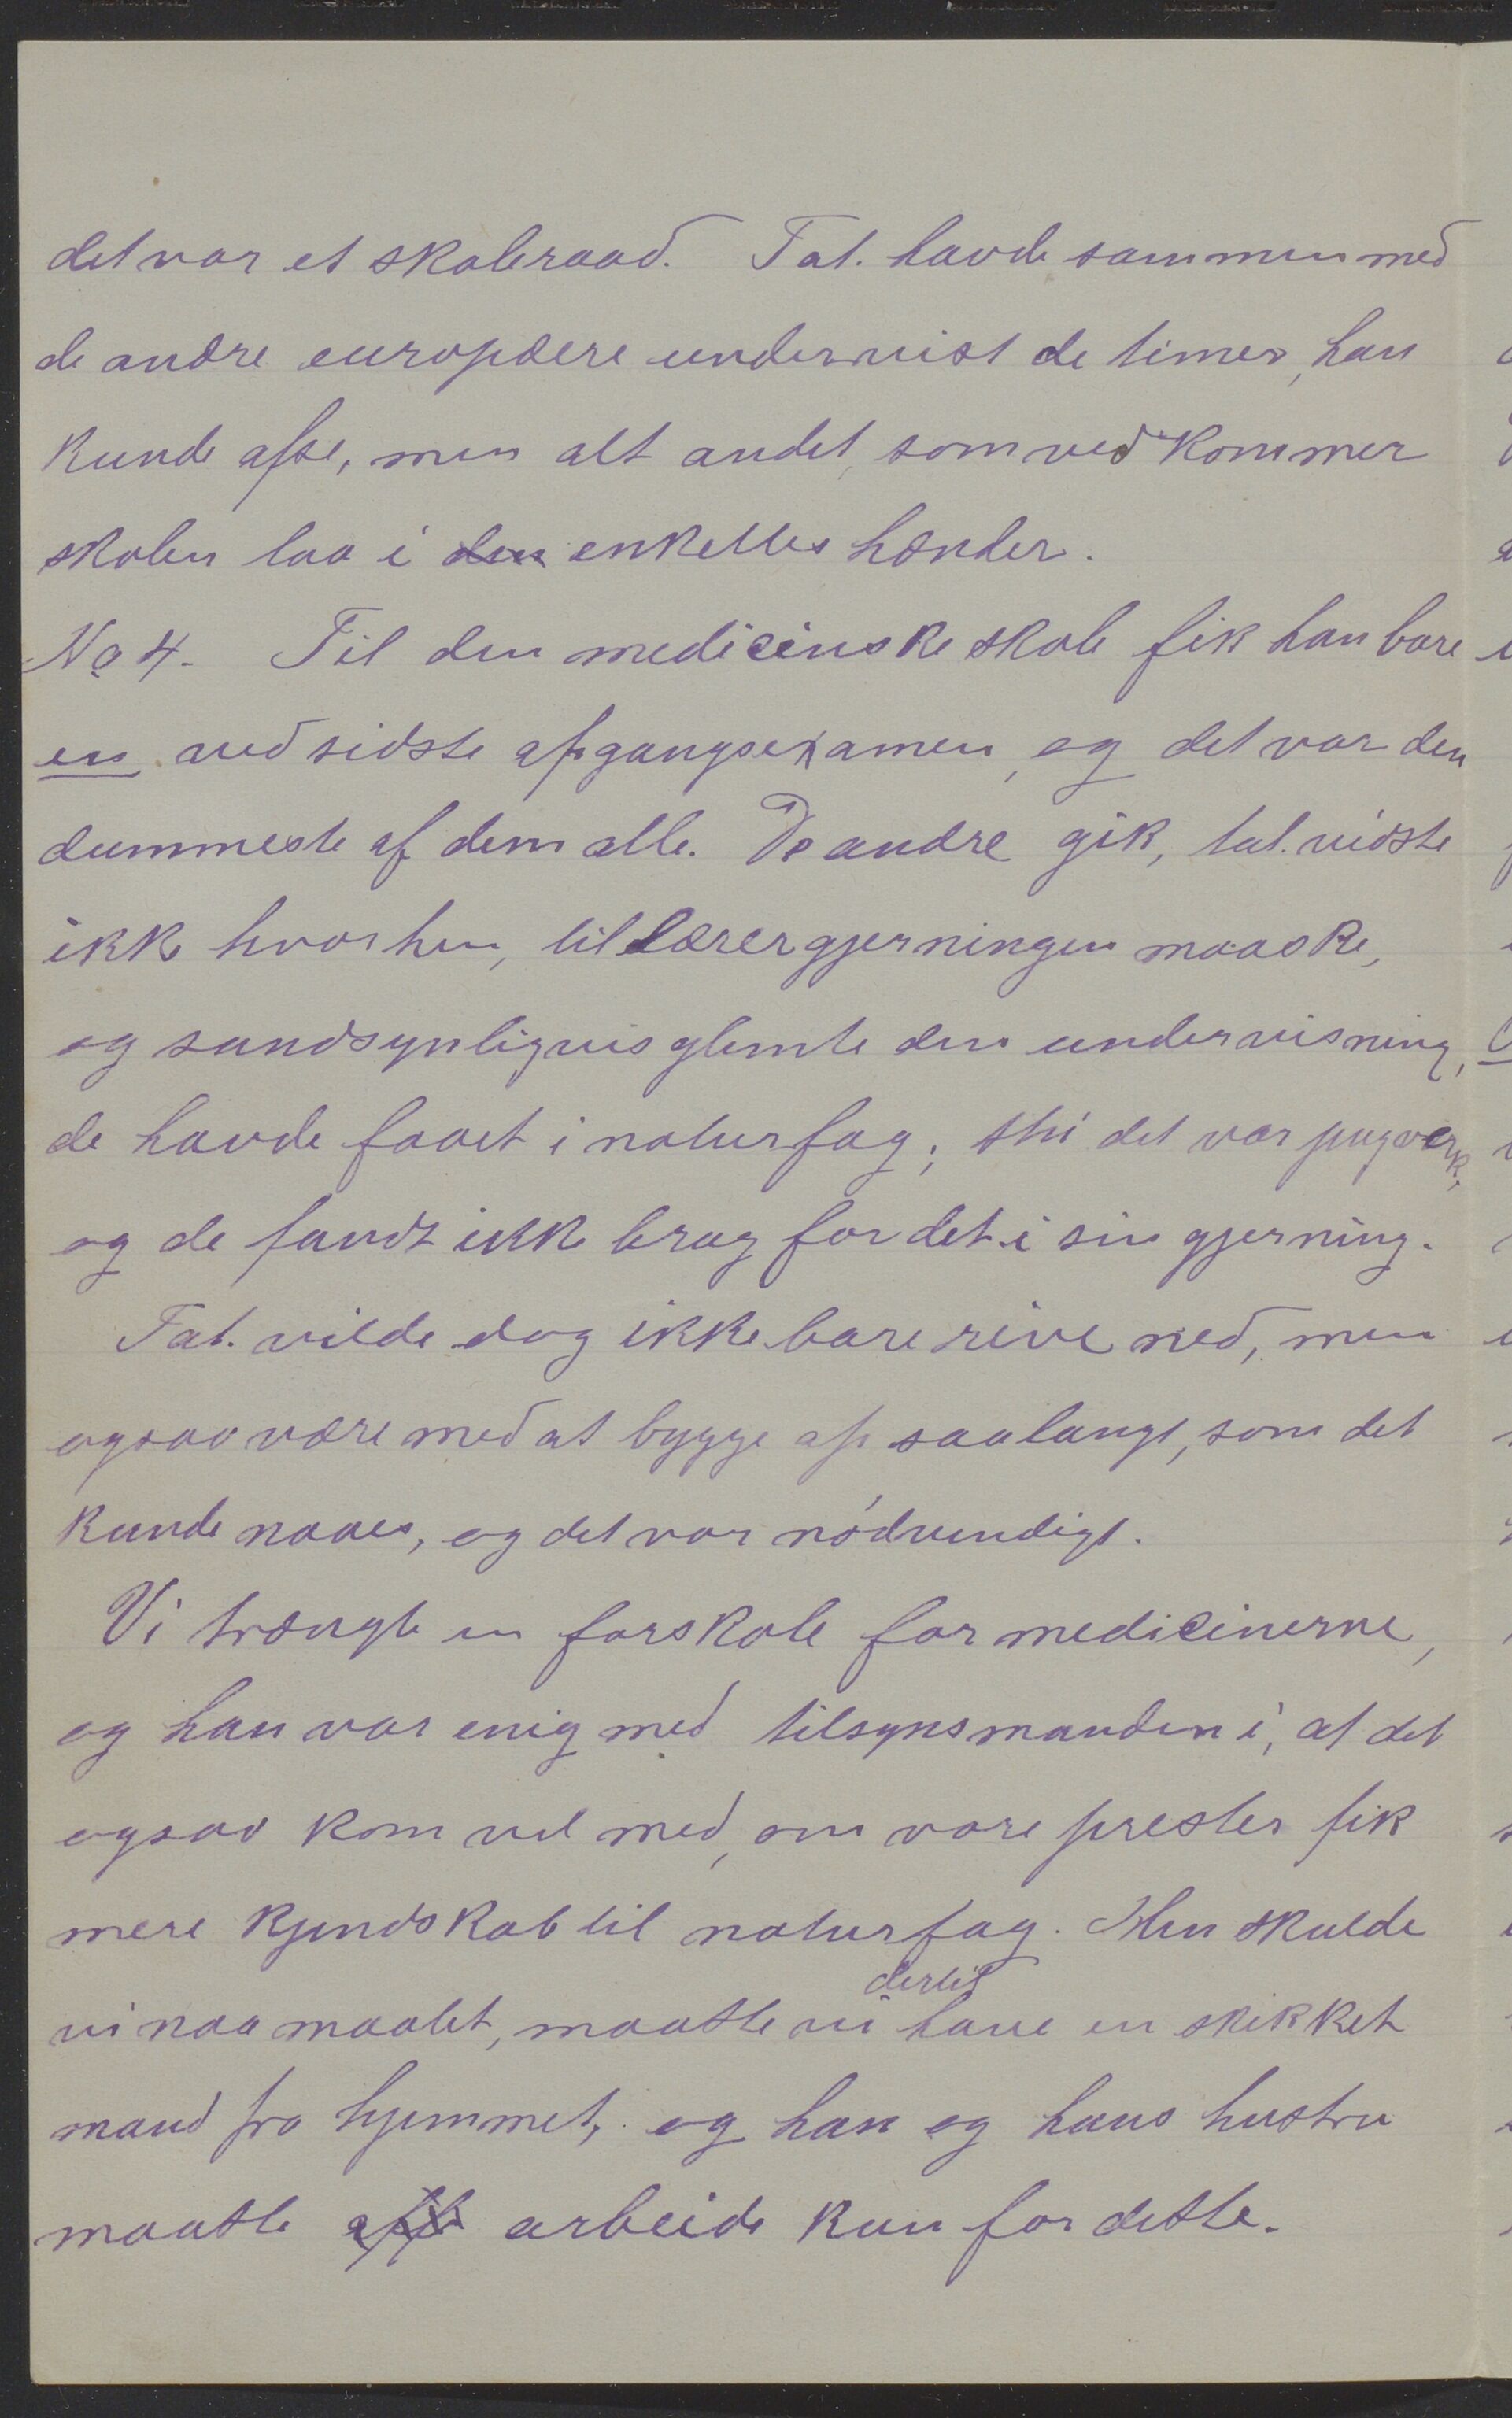 det var et skoleraad. Tal. havde sammen med
de andre europæere undervist de timer, han
kunde afse, men alt andet, som vedkommer
skolen laa i den enkeltes hænder.
No 4. Til den medicinske skole fik han bare
en ved sidste afgangsexamen, og det var den
dummeste af dem alle. De andre gik, tal. vidste
ikke hvorhen, til lærergjerningen maaske,
og sandsynligvis glemte den undervisning,
de havde faaet i naturfag; thi det var pugværk,
og de fandt ikke brug for det i sin gjerning.
Tal. vilde dog ikke bare rive ned, men
ogsaa være med at bygge op saalangt, som det
kunde naaes, og det var nødvendigt.
Vi trængte en forskole for medicinerne,
og han var enig med tilsynsmanden i, at det
ogsaa kom vel med, om vore prester fik
mere kjendskab til naturfag. Men skulde
dertil
vi naa maalet, maatte vi have en skikket
mand fra hjemmet, og han og hans hustru
maatte arbeide kun for dette.